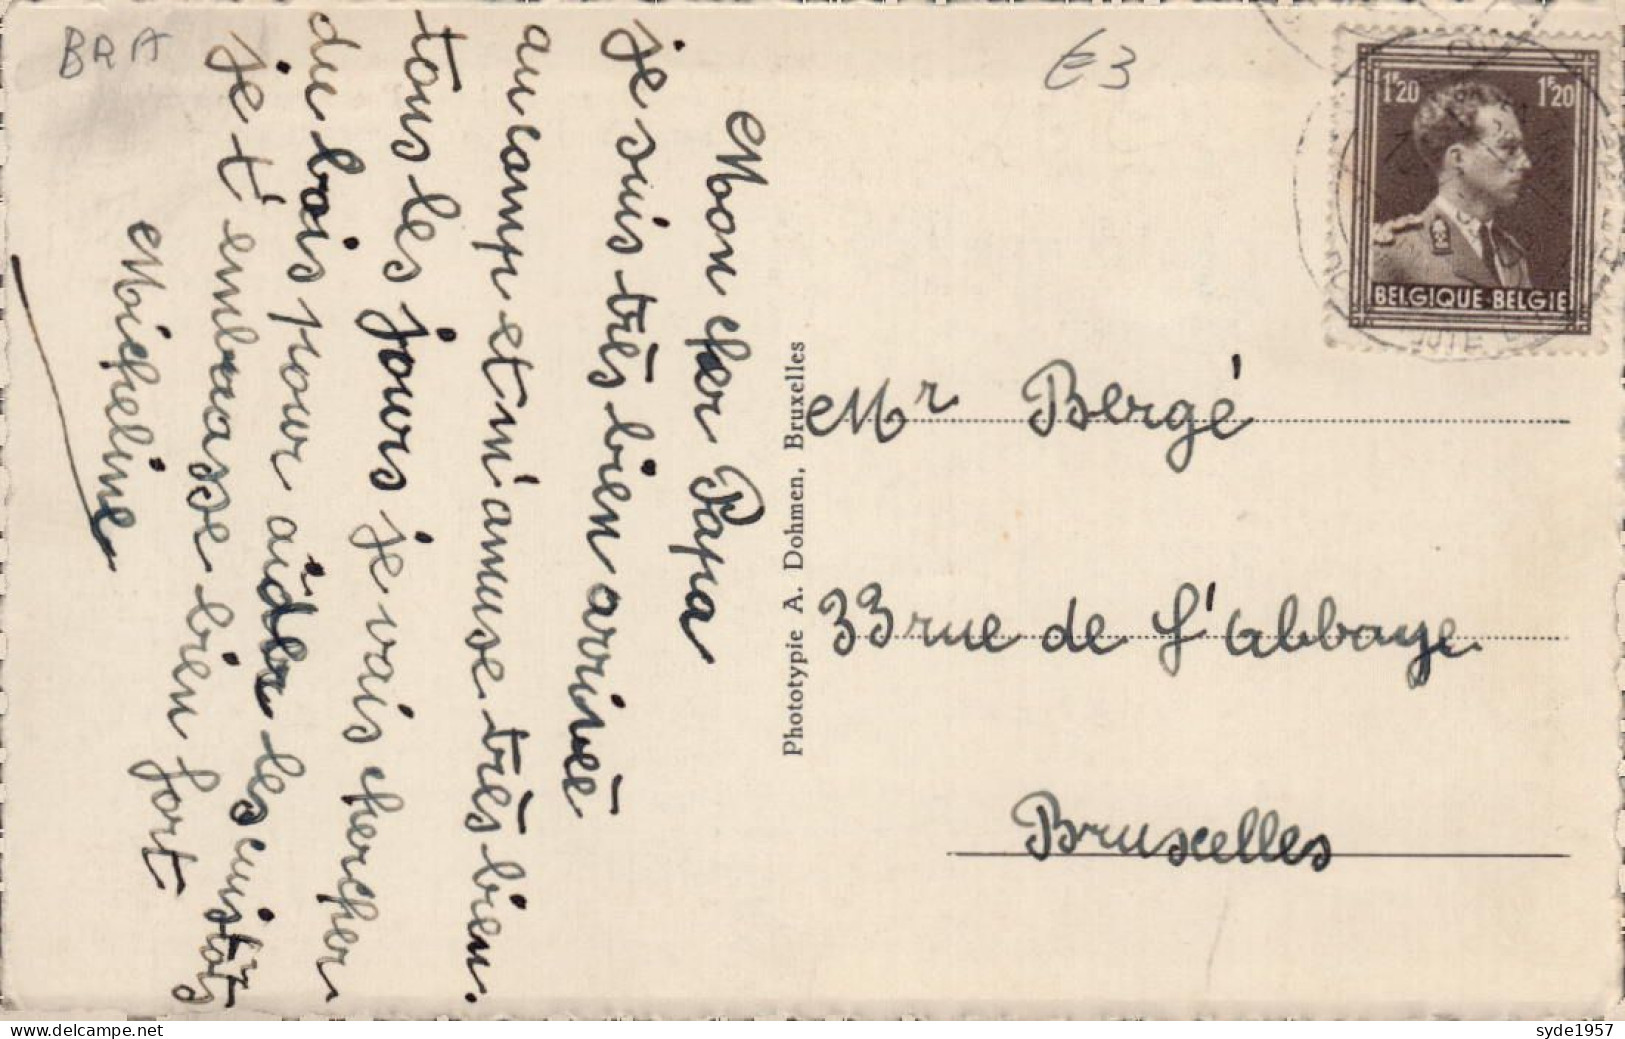 BRA
€3
Mon cher Papa
je suis très bien arrivée
au camp et m'amuse très bien.
tous les jours je vais chercher
du bois pour aider les cuistots
je t'embrasse bien fort
Micheline
Phototypie A. Dohmen, Bruxelles
1F20 1F20
BELGIQUE-BELGIE
Mr Bergé
33 rue de l'abbaye
Bruxelles
www.delcampe.net
syde1957